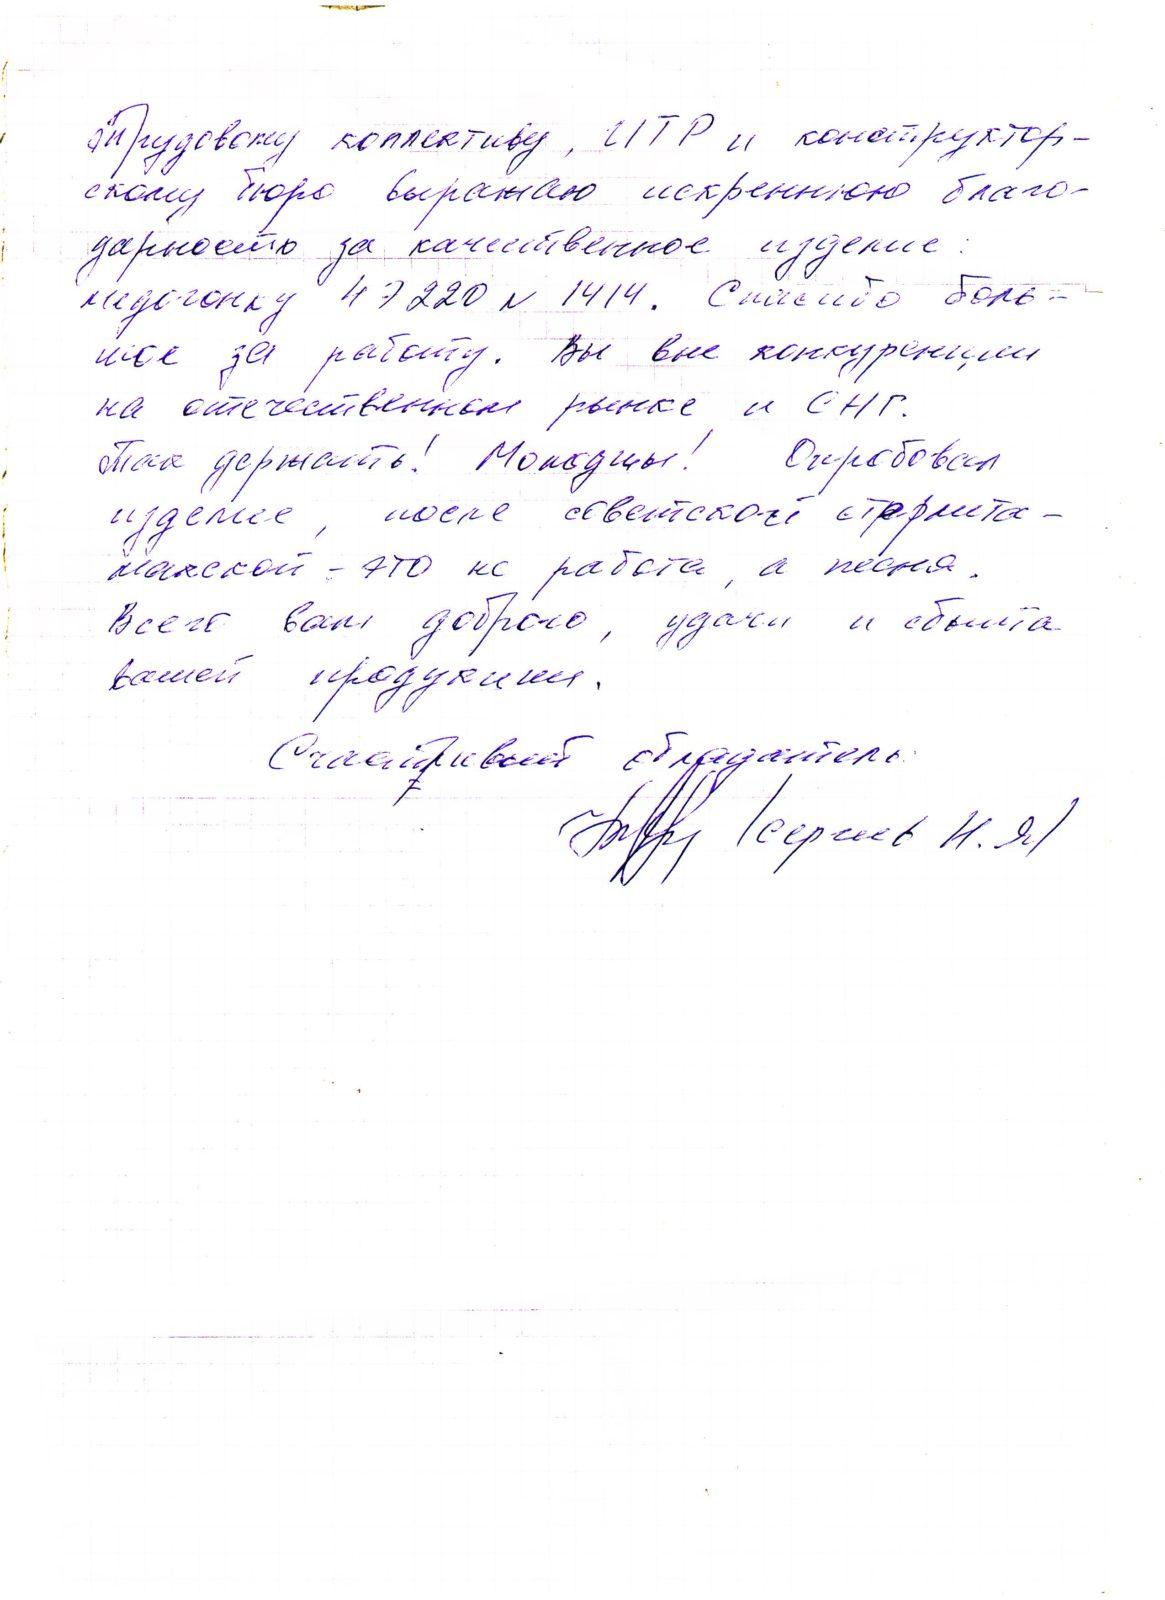 Трудовому коллективу, ИТР и конструктор-
скому бюро выражаю искреннюю благо-
дарность за качественное изделие:
медогонку 47220 N 1414. Спасибо боль-
шое за работу. Вы вне конкуренции
на отечественном рынке и СНГ.
Так держать! Молодцы! Опробовал
изделие, после советской стерлита-
макской - это не работа, а песня.
Всего вам доброго, удачи и сбыта
вашей продукции.
Счастливый обладатель:
/Сергеев Н. Я/